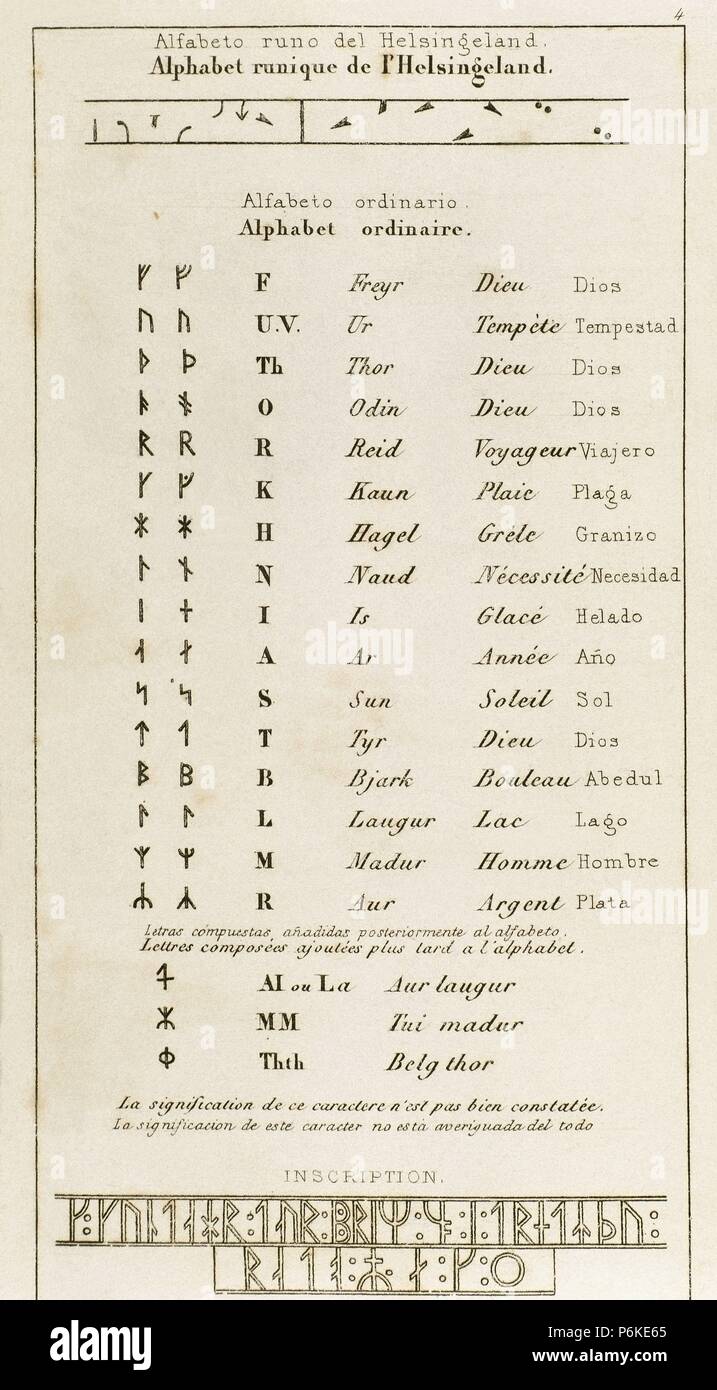 4
Alfabeto runo del Helsingeland.
Alphabet runique de l'Helsingeland.
Alfabeto ordinario.
Alphabet ordinaire.
ᚠ ᚠ F Freyr Dieu Dios
ᚢ ᚢ U.V. Ur Tempète Tempestad
ᚦ ᚦ Th Thor Dieu Dios
ᚨ ᚯ O Odin Dieu Dios
ᚱ ᚱ R Reid Voyageur Viajero
ᚴ ᚴ K Kaun Plaie Plaga
ᚼ ᚼ H Hagel Gréle Granizo
ᚿ ᚾ N Naud Nécessité Necesidad
ᛁ ᚽ I Is Glacé Helado
ᛆ ᛅ A Ar Année Año
ᛋ ᛋ S Sun Soleil Sol
ᛏ ᛐ T Tyr Dieu Dios
ᛒ ᛒ B Bjark Bouleau Abedul
ᛚ ᛚ L Laugur Lac Lago
ᛘ ᛘ M Madur Homme Hombre
ᛦ ᛦ R Aur Argent Plata
Letras compuestas, añadidas posteriormente al alfabeto.
Lettres composées ajoutées plus tard a l'alphabet.
AI ou La Aur laugur
MM Tui madur
Thth Belg thor
La signification de ce caractere n'est pas bien constatée.
La significacion de este caracter no està averiguada del todo
INSCRIPTION.
alamy
Image ID: P6KE65
www.alamy.com